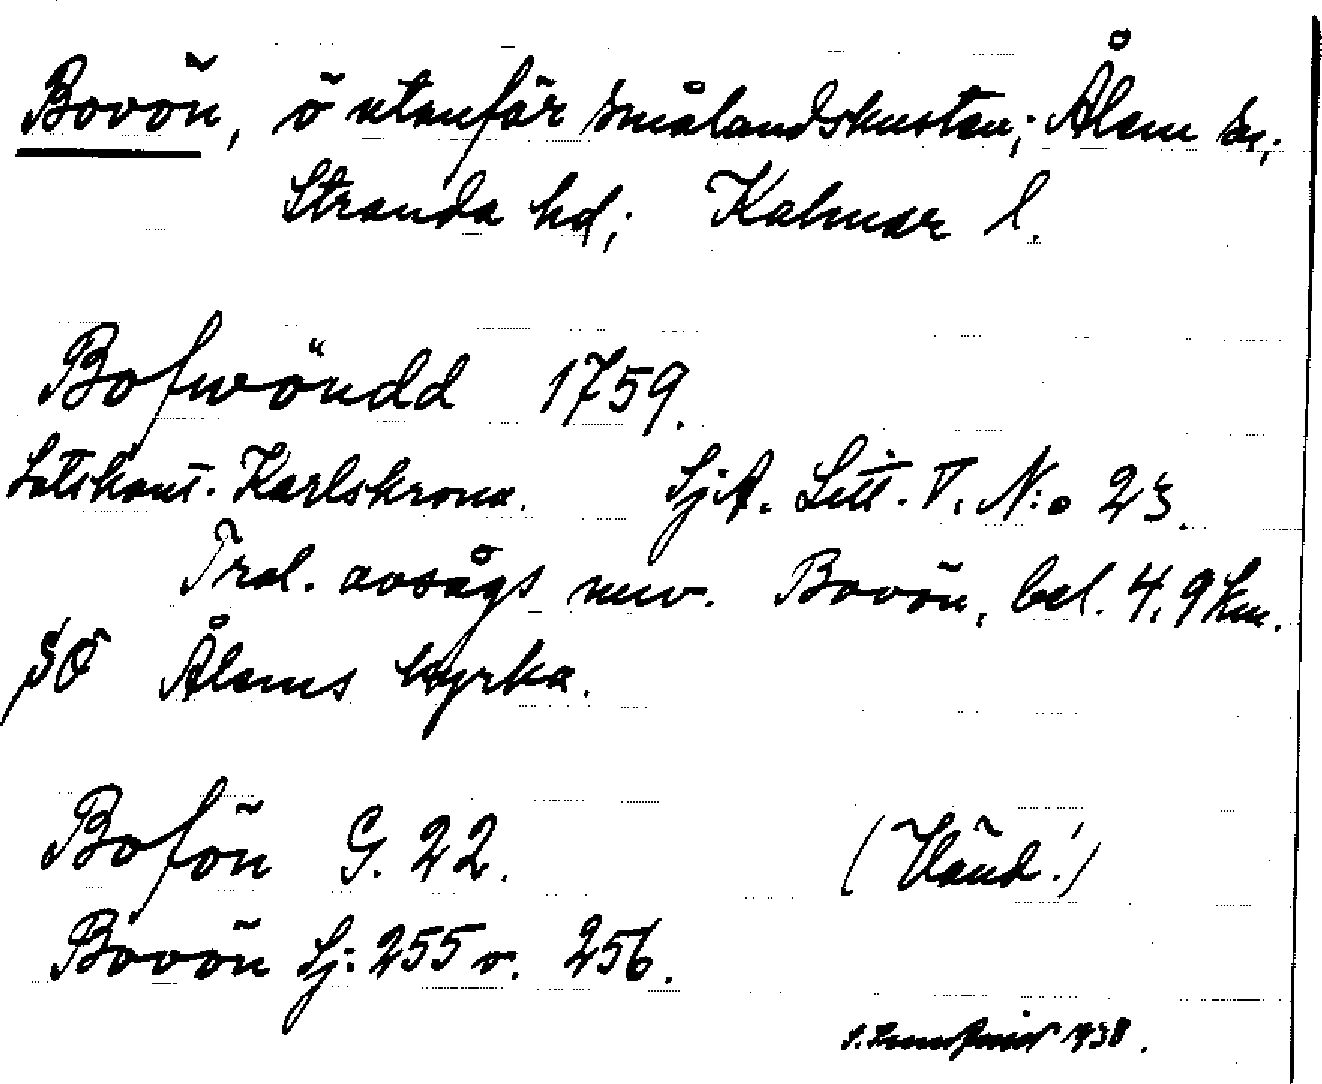 Bovön, ö utanför Smålandskusten; Ålem sn;
Stranda hd; Kalmar l.
Bofwöndd 1759.
Lotskont. Karlskrona. SjA. Litt. T. N:o 23.
Trol. avsågs nuv. Bovön, bel. 4,9 km.
SÖ Ålems kyrka.
Bofön G. 22. (Vänd!)
Bovön Sj: 255 v. 256.
1938.